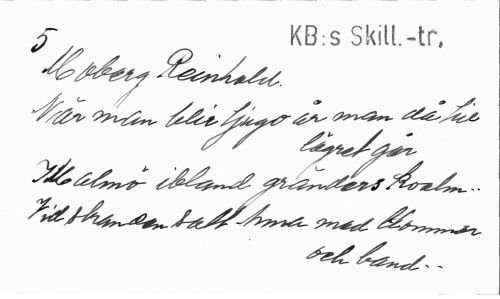 5
KB:s Skill.-tr.
Moberg Reinhold.
När man blir tjugo år man då till
lägret går
I Malmö ibland gränders kvalm--
Vid stranden satt Anna med blommor
och band--